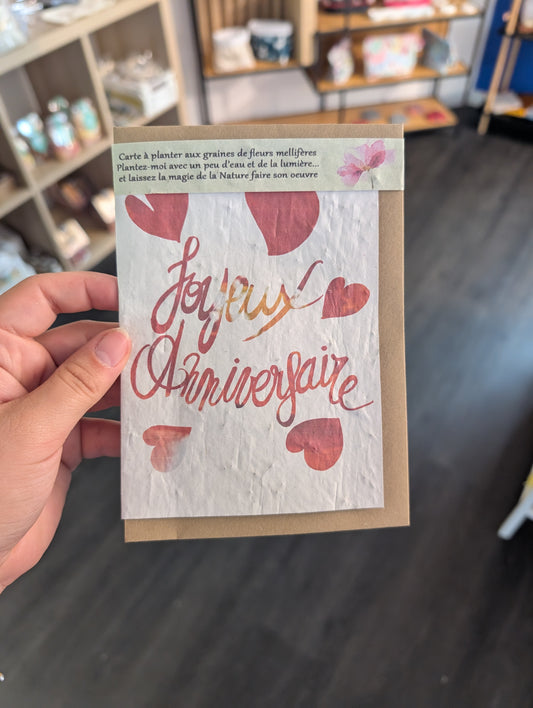 Carte à planter aux graines de fleurs mellifères
Plantez-moi avec un peu d'eau et de la lumière...
et laissez la magie de la Nature faire son oeuvre
Joyeux
Anniversaire